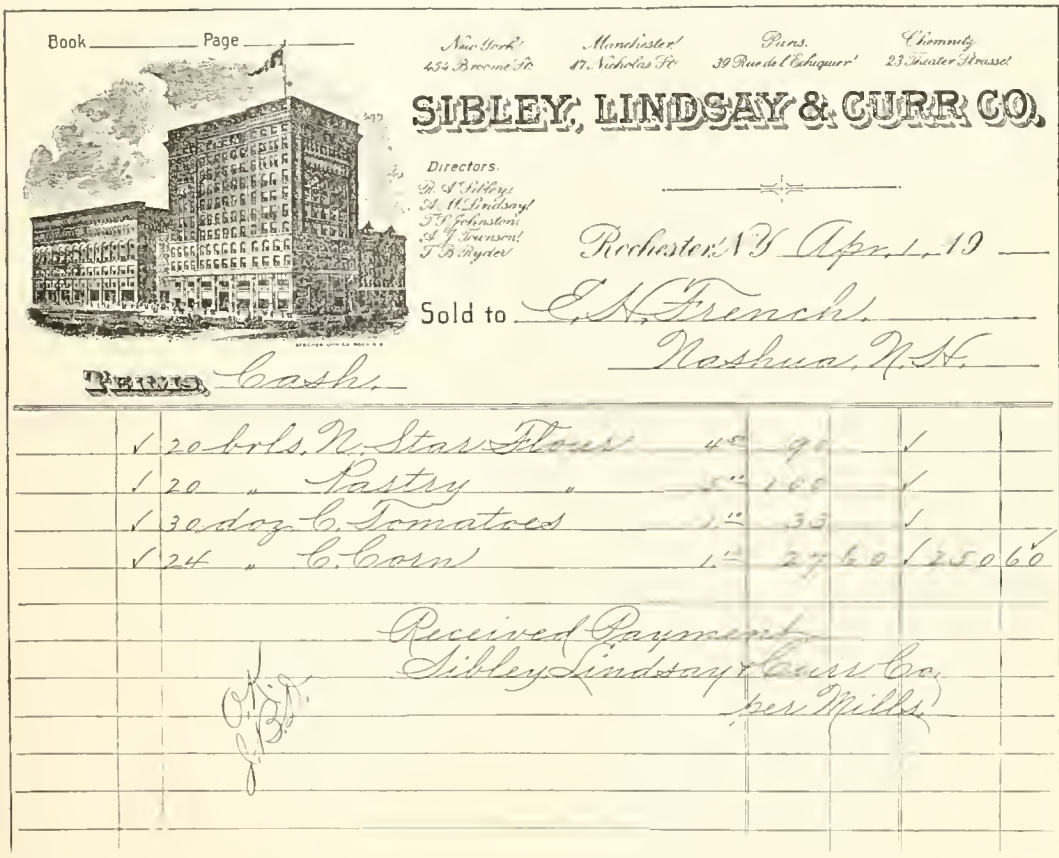 Book Page
New York Manchester Paris. Chemnitz
454 Broome St. 47 Nicholas St. 39 Rue de l'Echiquier 23 Theater Strasse
SIBLEY, LINDSAY & CURR CO.
Directors.
R. A. Sibley
A. M. Lindsay
T. S. Johnston
A. J. Townson
T. B. Ryder
Rochester, N.Y. Apr. 1, 19
Sold to E. H. French.
Nashua, N. H.
TERMS, Cash.
✓ 20 brls. N. Star Flour 4 50 90 ✓
✓ 20 " Pastry " 5 00 100 ✓
✓ 30 doz C. Tomatoes 1. 10 33 ✓
✓ 24 " C. Corn 1. 15 27 60 ✓ 250 60 ✓
Received Payment
Sibley Lindsay & Curr Co,
per Mills.
O.K.
J.B.S.